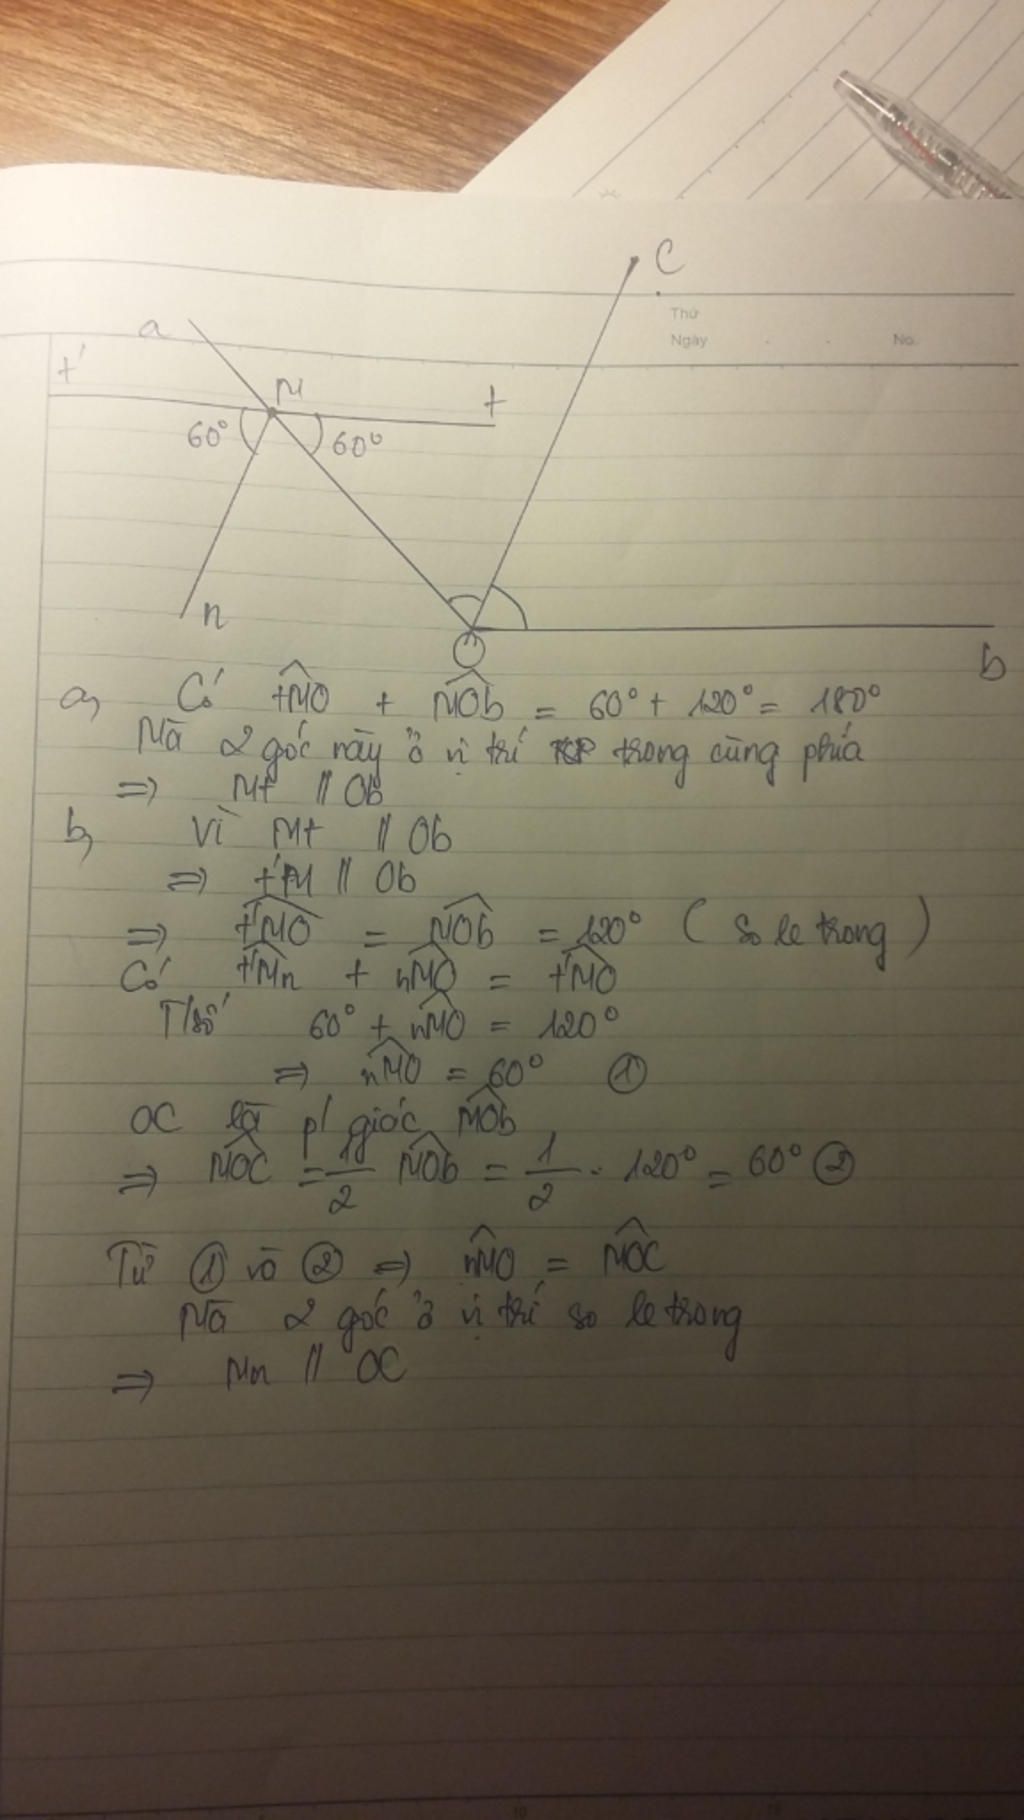 C
Thứ
Ngày
No.
a
t'
M
t
60°
60°
n
O
b
a, Có tMO + MOb = 60° + 120° = 180°
Mà 2 góc này ở vị trí trong cùng phía
=> Mt // Ob
b, Vì Mt // Ob
=> t'M // Ob
=> t'MO = MOb = 120° ( so le trong )
Có t'Mn + nMO = t'MO
T/số 60° + nMO = 120°
=> nMO = 60° ①
OC là p/ giác MOb
=> MOC = 1/2 MOb = 1/2 . 120° = 60° ②
Từ ① và ② => nMO = MOC
Mà 2 góc ở vị trí so le trong
=> Mn // OC